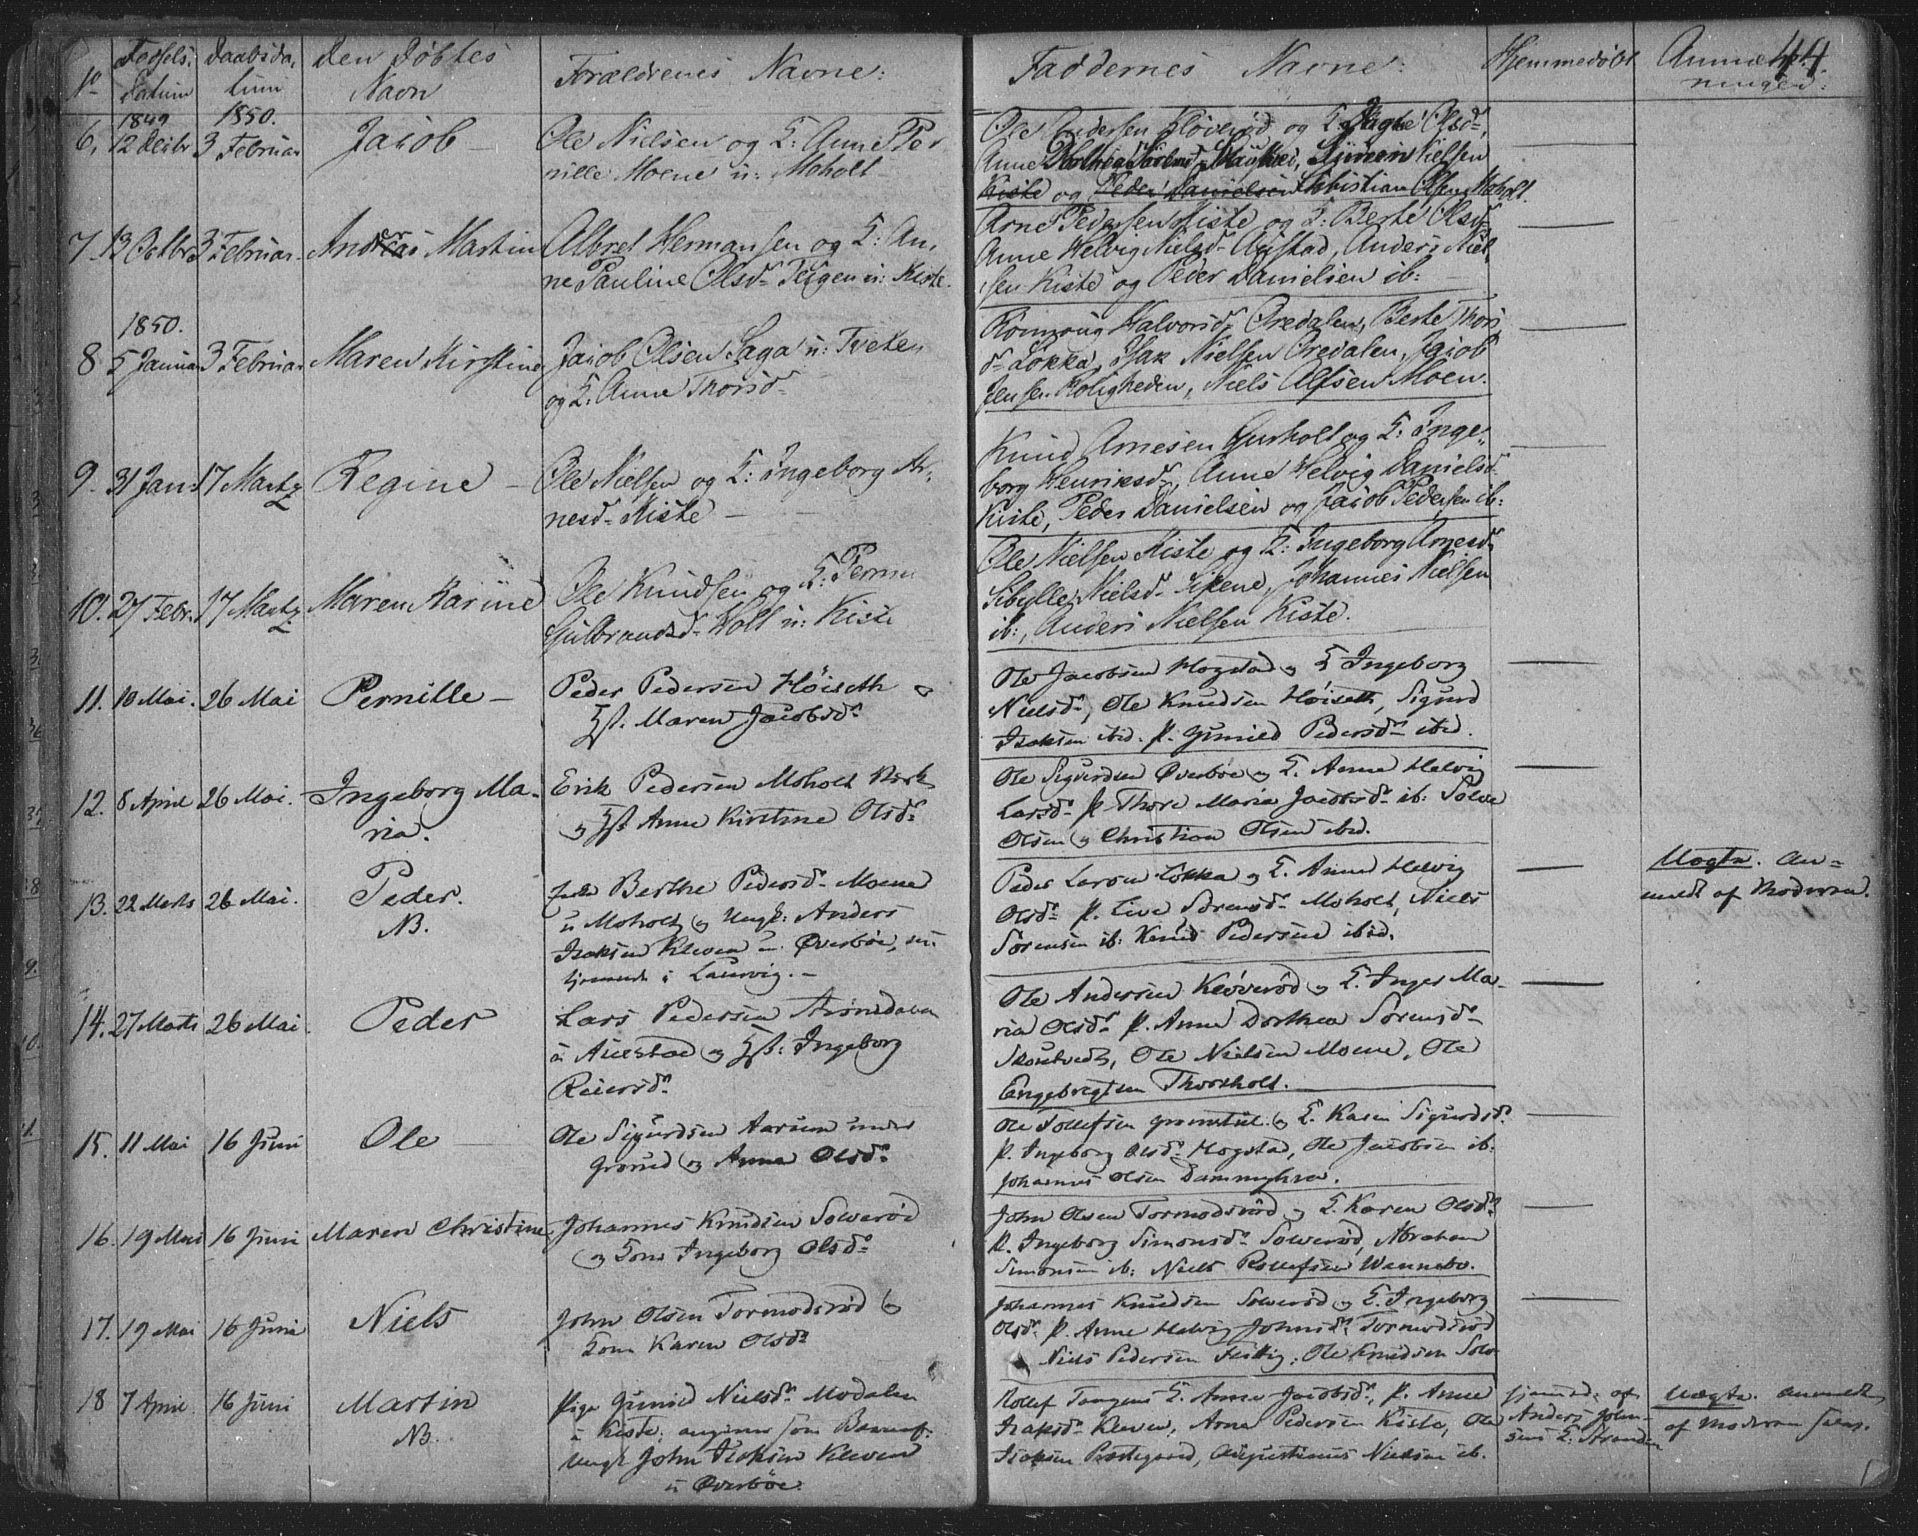 No
Fødsels-
Datum
Daabsda-
tum
Den Døbtes
Navn
Forældrenes Navne:
Faddernes Navne:
Hjemmedøbt
Anmærk-
ninger:
44.
1849
1850.
6.
12 Decbr
3 Februar
Jacob —
Ole Nielsen og K: Anne Per
nille Moene u: Moholt
Ole Andersen Kløverød og K. Olsd.
Anne Dorthea Sørensd. Simen Nielsen
Kiste og Peder Danielsen Christian Olsen Moholt.
7.
13 Octbr
3 Februar
Andreas Martin
Albret Hermansen og K: An-
ne Pauline Olsd. Teigen u: Kiste.
Arne Pedersen Kiste og K: Berte Olsd.
Anne Helvig Nielsd. Auestad, Anders Niel-
sen Kiste og Peder Danielsen ib:
1850.
8
5 Januar
3 Februar
Maren Kirstine
Jacob Olsen Saga u: Tveten
og K. Anne Thorsd.
Halvorsd. Oredalen, Berte Thors
d. Løkka, Isak Nielsen Oredalen, Jacob
Jensen Roligheden, Niels Alfsen Moen.
9.
31 Jan:
17 Martz
Regine —
Ole Nielsen og K: Ingeborg Ar-
nesd. Kiste —
Knud Arnesen Gurholt og K: Inge-
borg Henriksd., Anne Helvig Danielsd.
Kiste, Peder Danielsen og Jacob Pedersen ib:
10.
27 Febr.
17 Martz
Maren Karine
Ole Knudsen og K: Pernille
Gulbrandsd. Holt u: Kiste
Ole Nielsen Kiste og K: Ingeborg Arnesd.
Sibylle Nielsd. Johannes Nielsen
ib:, Anders Nielsen Kiste.
11.
10 Mai.
26 Mai
Pernille —
Peder Pedersen Høiseth og
Hst. Maren Jacobsd.
Ole Jacobsen Hogstad og K Ingeborg
Nielsd., Ole Knudsen Høiseth, Sigurd
Isaksen ibid. P. Gunild Pedersd. ibid.
12.
8 April
26 Mai.
Ingeborg Ma-
ria.
Erik Pedersen Moholt
og Hst Anne Kirstine Olsd.
Ole Sigurdsen Øverbøe og K. Anne Helvig
Larsd. P. Thore Maria Jacobsd. ib: Solve
Olsen og Christian Olsen ibid.
13.
22 Marts
26 Mai.
Peder.
NB.
Berthe Pedersd. Moene
u Moholt og Ungk: Anders
Isaksen Kleven u: Øverbøe, nu
tjenende i Laurvig. —
Peder Larsen Løkka og K. Anne Helvig
Olsd. P. Live Sørensd. Moholt, Niels
Sørensen ib: Knud Pedersen ibid.
Uægte. An-
meldt af Moderen.
14.
27 Marts
26 Mai.
Peder
Lars Pedersen
u: Auestad og Hst: Ingeborg
Reiersd.
Ole Andersen Kløverød og K. Inger Ma-
ria Olsd. P. Anne Dorthea Sørensd.
Ole Nielsen Moene, Ole
Engebregtsen Thorsholt.
15.
11 Mai
16 Juni
Ole —
Ole Sigurdsen Aarum under
Grorud og Anne Olsd.
Ole Tollefsen Grønstul. og K. Karen Sigurdsd.
P. Ingeborg Olsd. Hogstad, Ole Jacobsen ib:
Johannes Olsen Dammyhra.
16.
19 Mai
16 Juni
Maren Christine
Johannes Knudsen Solverød
og Kone Ingeborg Olsd.
John Olsen Tormodsrød og K. Karen Olsd.
P. Ingeborg Simonsd. Solverød, Abraham
Simonsen ib: Niels Rollefsen Wennebo.
17.
19 Mai
16 Juni
Niels
John Olsen Tormodsrød og
Kone Karen Olsd.
Johannes Knudsen Solverød og K. Ingeborg
Olsd. P. Anne Helvig Johnsd. Tormodsrød
Niels Pedersen Ole Knudsen Solv-
18
7 April
16 Juni
Martin
NB.
Pige Gunild Nielsd. Modalen
u Kiste; angiver som Barnef:
Ungk John Isaksen Kleven
u Øverbøe.
Rollef Tangens K. Anne Jacobsd., P. Anne
Isaksd. Kleven, Arne Pedersen Kiste, Ole
Isaksen Præstegaard, Augustinus Nielsen ib.
hjemmed: af
Anders John-
sens K. Stranden
Uægte. anmeldt
af Moderen